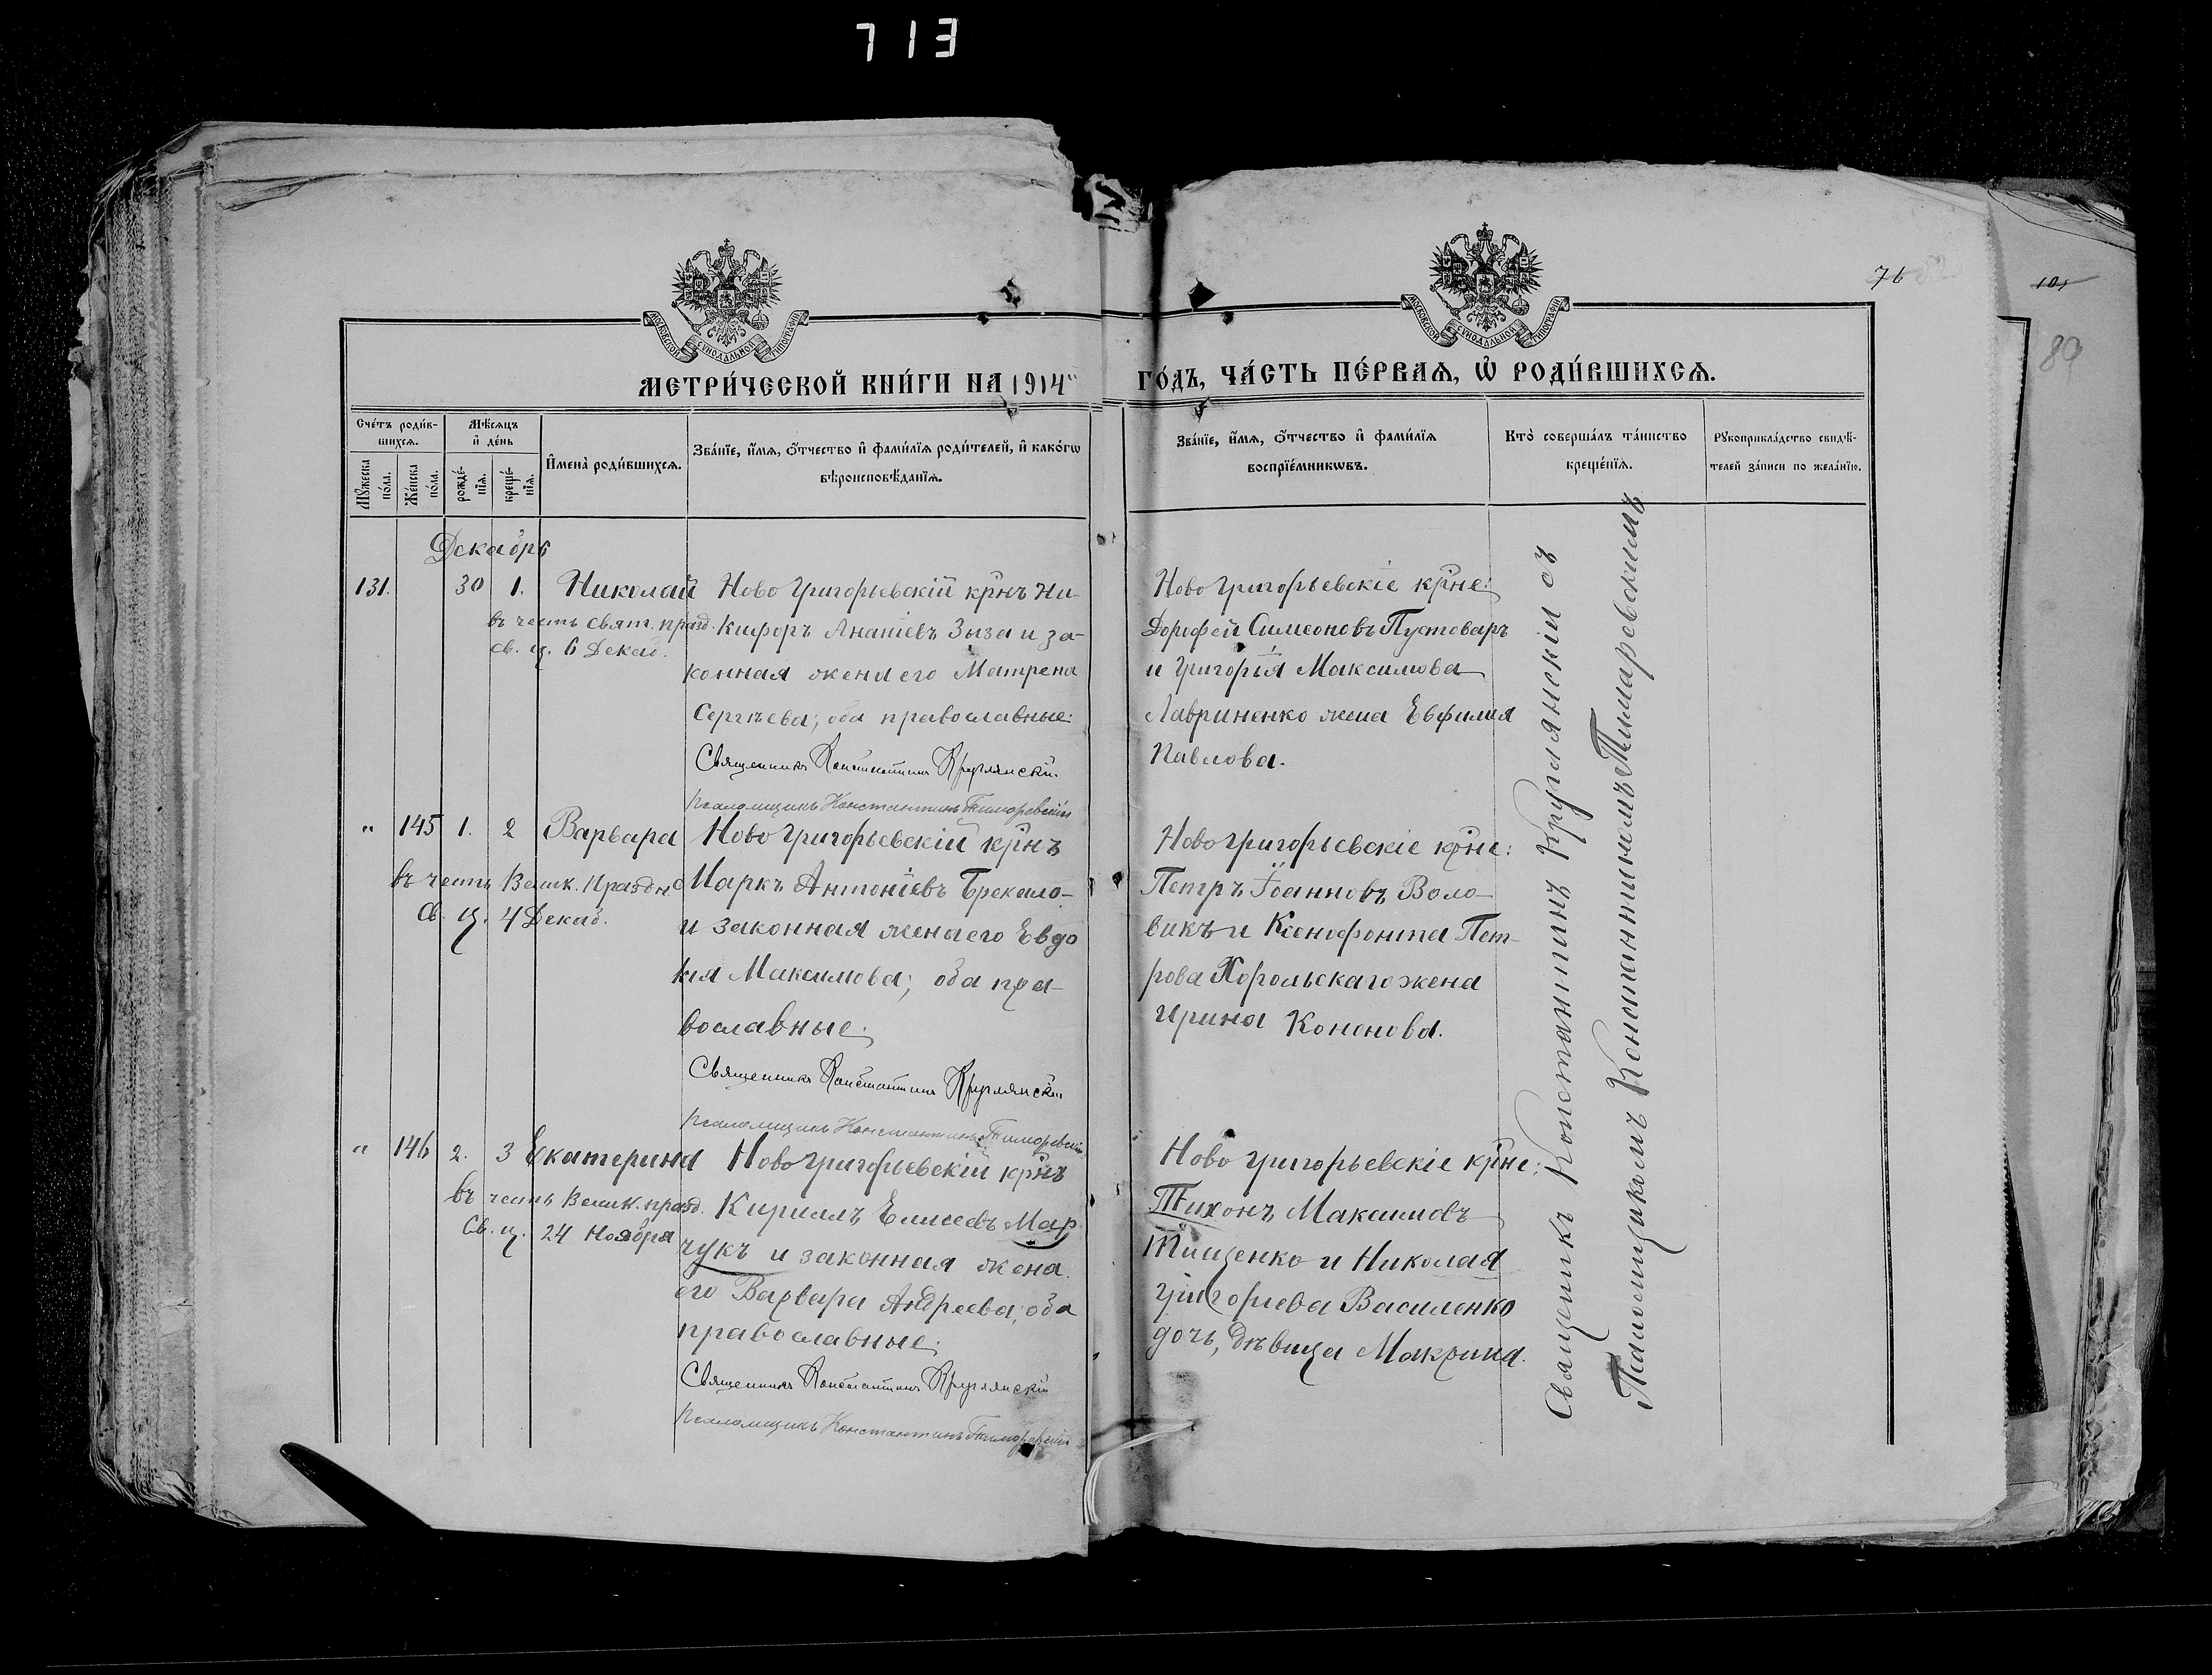 713
76
101
89
МОСКОВСКОЙ СѴНОДАЛЬНОЙ ТИПОГРАФІИ
МОСКОВСКОЙ СѴНОДАЛЬНОЙ ТИПОГРАФІИ
МЕТРИ́ЧЕСКОЙ КНИ́ГИ НА 1914 ГО́ДЪ, ЧА́СТЬ ПЕ́РВАѦ, Ѡ҆ РОДИ́ВШИХСѦ.
Сче́тъ роди́в-
шихсѧ.
Мꙋ́жеска по́ла.
Же́нска по́ла.
Мѣ́сѧцъ и҆ де́нь
рожде́-
нїѧ.
креще́-
нїѧ.
И҆мена̀ роди́вшихсѧ.
Зва́нїе, и҆́мѧ, ѻ҆́тчество и҆ фами́лїѧ роди́телей, и҆ како́гѡ
вѣроисповѣ́данїѧ.
Зва́нїе, и҆́мѧ, ѻ҆́тчество и҆ фами́лїѧ
воспрїе́мникѡвъ.
Кто̀ соверша́лъ та́инство
креще́нїѧ.
Рꙋкоприкла́дство свидѣ́-
телей за́писи по жела́нїю.
Декабрь
131. 30 1. Николай
въ честь свят. празд.
св. ц. 6 Декаб.
Ново Григорьевскій крнъ Ни-
кифоръ Ананіевъ Зыза и за-
конная жена его Матрена
Сергѣева; оба православные.
Священникъ Константинъ Круглянскій
Псаломщикъ Константинъ Тимаревскій
Ново Григорьевскіе крне:
Дорофей Симеоновъ Пустоваръ
и Григорія Максимова
Лавриненко жена Евфимія
Павлова.
" 145 1. 2 Варвара
въ честь Велик. Праздн.
Св. ц. 4 Декаб.
Ново Григорьевскій крнъ
Маркъ Антоніевъ Брекало
и законная жена его Евдо
кія Максимова; оба пра-
вославные.
Священникъ Константинъ Круглянскій
Псаломщикъ Константинъ Тимаревскій
Ново Григорьевскіе крне:
Петръ Іоанновъ Воло-
викъ и Ксенофонта Пет-
рова Хорольскаго жена
Ирина Кононова.
" 146 2. 3 Екатерина
въ честь Велик. празд.
Св. ц. 24 Ноября
Ново Григорьевскій крнъ
Кириллъ Елисеевъ Мар
чукъ и законная жена
его Варвара Андреева; оба
православные.
Священникъ Константинъ Круглянскій
Псаломщикъ Константинъ Тимаревскій
Ново Григорьевскіе крне:
Тихонъ Максимовъ
Тищенко и Николая
Григорьева Василенко
дочь, дѣвица Макрина.
Священникъ Константинъ Круглянскій съ
Псаломщикомъ Константиномъ Тимаревскимъ